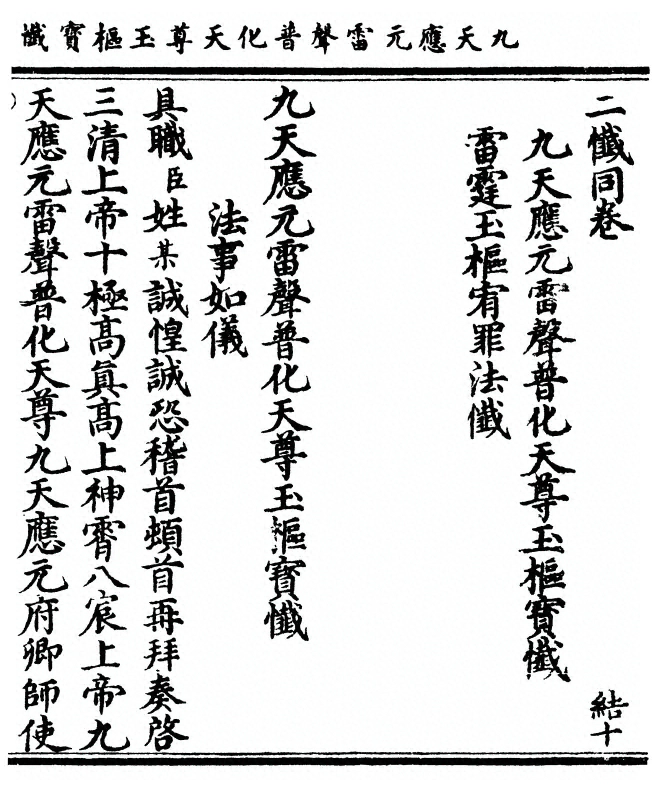 九天應元雷聲普化天尊玉樞寶懺
二懺同卷 結十
九天應元雷聲普化天尊玉樞寶懺
雷霆玉樞宥罪法懺
九天應元雷聲普化天尊玉樞寶懺
法事如儀
具職臣姓某誠惶誠恐稽首頓首再拜奏啓
三清上帝十極高眞高上神霄八宸上帝九
天應元雷聲普化天尊九天應元府卿師使